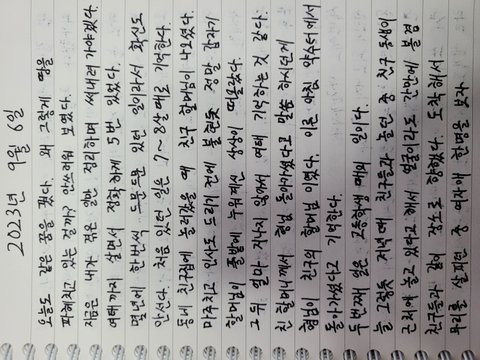 2023년 9월 6일
오늘도 같은 꿈을 꿨다. 왜 그렇게 땅을
파헤치고 있는 걸까? 안쓰러워 보였다.
지금은 내가 겪은 일만 정리하며 써내려 가야겠다.
여태까지 살면서 정확하게 5번 있었다.
몇년에 한번씩 드문드문 있던 일이라서 확신도
안선다. 처음 있던 일은 7~8살 때로 기억한다.
동네 친구집에 놀러갔을 때 친구 할머님이 나오셨다.
마주치고 인사도 드리기 전에 불현듯 정말 갑자기
할머님이 풀밭에 누워계신 상상이 떠올랐다.
그 뒤 얼마 지나지 않아서 여태 기억하는 것 같다.
친할머니께서 형님 돌아가셨다고 말씀 하시던게
형님이 친구의 할머님 이였다. 이른 아침 약수터에서
돌아가셨다고 기억한다.
두번째 일은 고등학생 때의 일이다.
늘 그렇듯 저녁에 친구들과 놀던 중 친구 동생이
근처에 놀고 있다고 해서 얼굴이라도 간만에 볼겸
친구들과 같이 장소로 향했다. 도착해서
무리를 살피던 중 여자애 한명을 보자